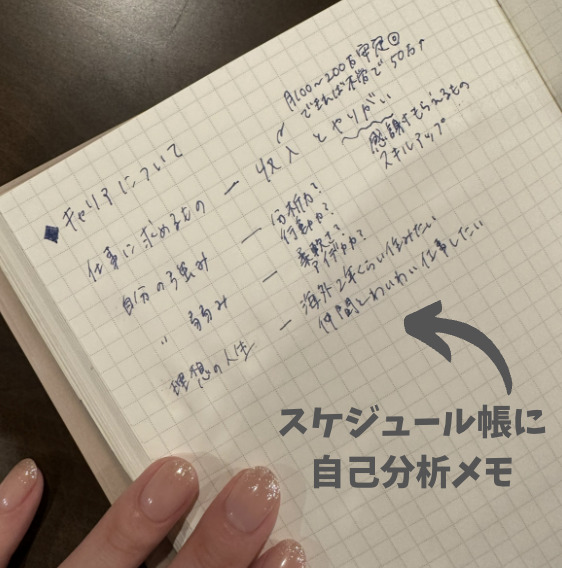 月100〜200万安定◎
できれば不労で50万↑
◆キャリアについて
仕事に求めるもの ー 収入とやりがい
感謝してもらえるもの
スキルアップ
自分の強み ー 分析力?
行動力?
〃 弱み ー 柔軟さ?
アイデア力?
理想の人生 ー 海外2年くらい住みたい
仲間とわいわい仕事したい
スケジュール帳に
自己分析メモ